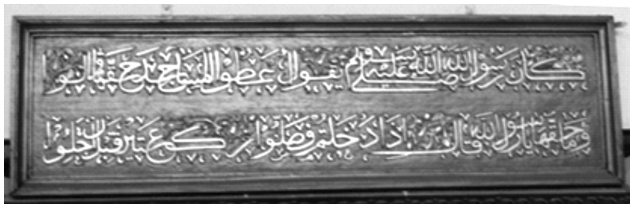 كان رسول الله صلى الله عليه وسلم يقول اعطوا المساجد حقها قالوا
وما حقها يا رسول الله قال اذا دخلتم فصلوا ركعتين قبل ان تجلسوا